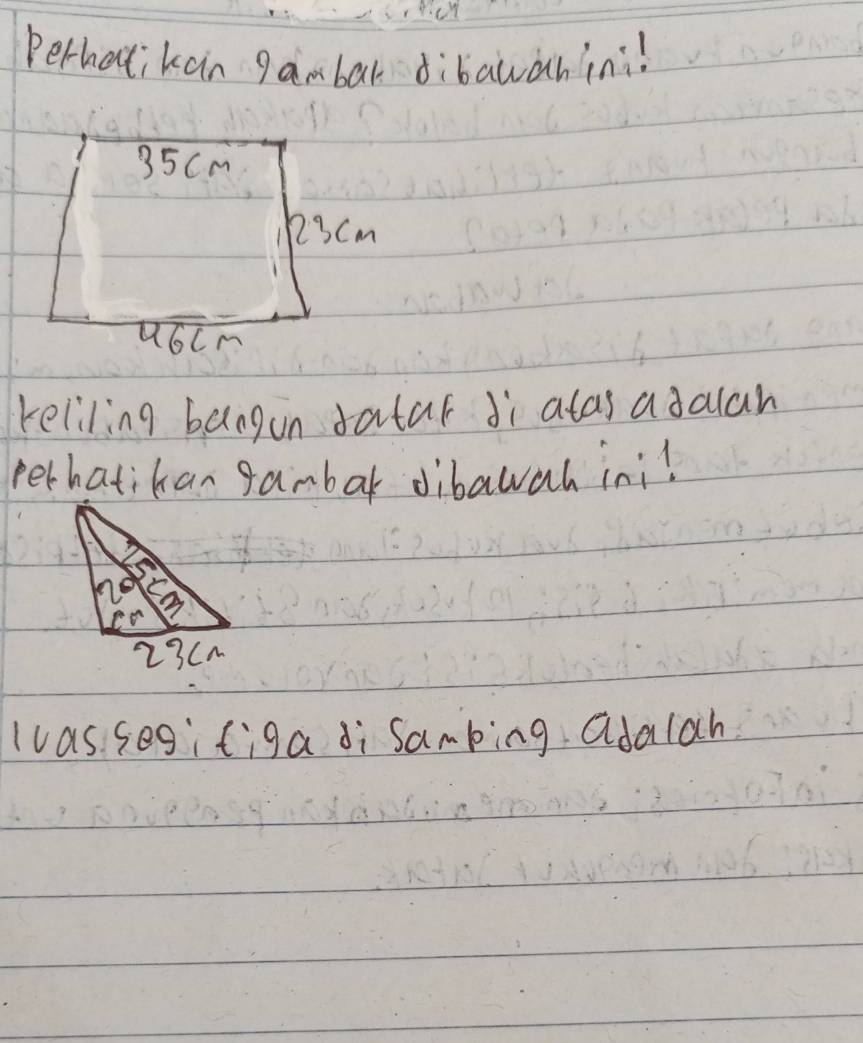 Perhatikan gambar dibawah ini!
35cm
23cm
46cm
keliling bangun datar di atas adalah
perhatikan gambar dibawah ini!
15cm
20
cm
23cm
luas segitiga di samping adalah